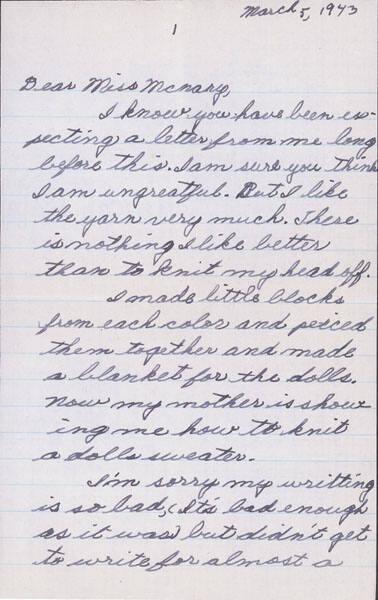 March 5, 1943
1
Dear Miss McNary,
I know you have been ex-
pecting a letter from me long
before this. I am sure you think
I am ungreatful. But I like
the yarn very much. There
is nothing I like better
than to knit my head off.
I made little blocks
from each color and peiced
them together and made
a blanket for the dolls.
Now my mother is show
ing me how to knit
a dolls sweater.
I'm sorry my writting
is so bad, (It's bad enough
as it was) but didn't get
to write for almost a